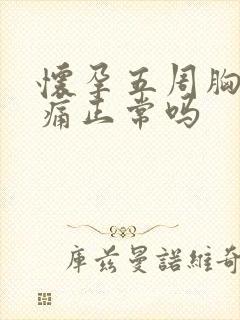 懷孕五周胸
痛正常嗎
庫茲曼諾維奇